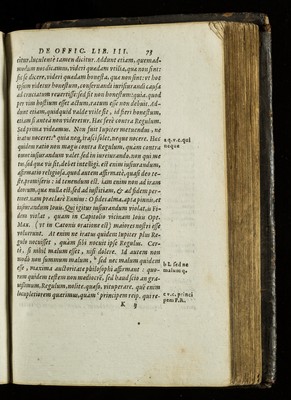 DE OFFIC. LIB. III. 75
citur, luculentè tamen dicitur. Addunt etiam, quem ad-
modum nos dicamus, videri quædam vtilia, quæ non sint:
sic se dicere, videri quædam honesta, quæ non sint: vt hoc
ipsum videtur honestum, conseruandi iurisiurandi causa
ad cruciatum reuertisse: sed fit non honestum: quia, quod
per vim hostium esset actum, ratum esse non debuit. Ad-
dunt etiam, quidquid valde vtile sit, id fieri honestum,
etiam si antea non videretur. Hæc ferè contra Regulum.
Sed prima videamus. Non fuit Iupiter metuendus, ne
iratus noceret: quia neq; irasci solet, neque nocere. Hæc
quidem ratio non magis contra Regulum, quàm contra
omne iusiurandum valet. sed in iureiurando, non qui me
tus, sed quæ vis sit, debet intelligi. est enim iusiurandum,
affirmatio religiosa. quod autem affirmatè, quasi deo te-
ste, promiseris: id tenendum est. iam enim non ad iram
deorum, quæ nulla est, sed ad iustitiam, & ad fidem per-
tinet. nam præclarè Ennius: O fides alma, apta pinnis, et
iusiurandum Iouis. Qui igitur iusiurandum violat, is fi-
dem violat, quam in Capitolio vicinam Iouis Opt.
Max. (vt in Catonis oratione est) maiores nostri esse
voluerunt. At enim ne iratus quidem Iupiter plus Re-
gulo nocuisset, quàm sibi nocuit ipse Regulus. Cer-
tè, si nihil malum esset, nisi dolere. Id autem non
modò non summum malum, b sed nec malum quidem
esse, maxima auctoritate philosophi affirmant: quo-
rum quidem testem non mediocrē, sed haud scio an gra-
uissimum, Regulum, nolite, quæso, vituperare. quē enim
locupletiorem quærimus, quàm c principem reip. qui re-
K ij
a q. v. c. qui
neque
b l. sed ne
malum q.
c v. c. princi
pem P.R.